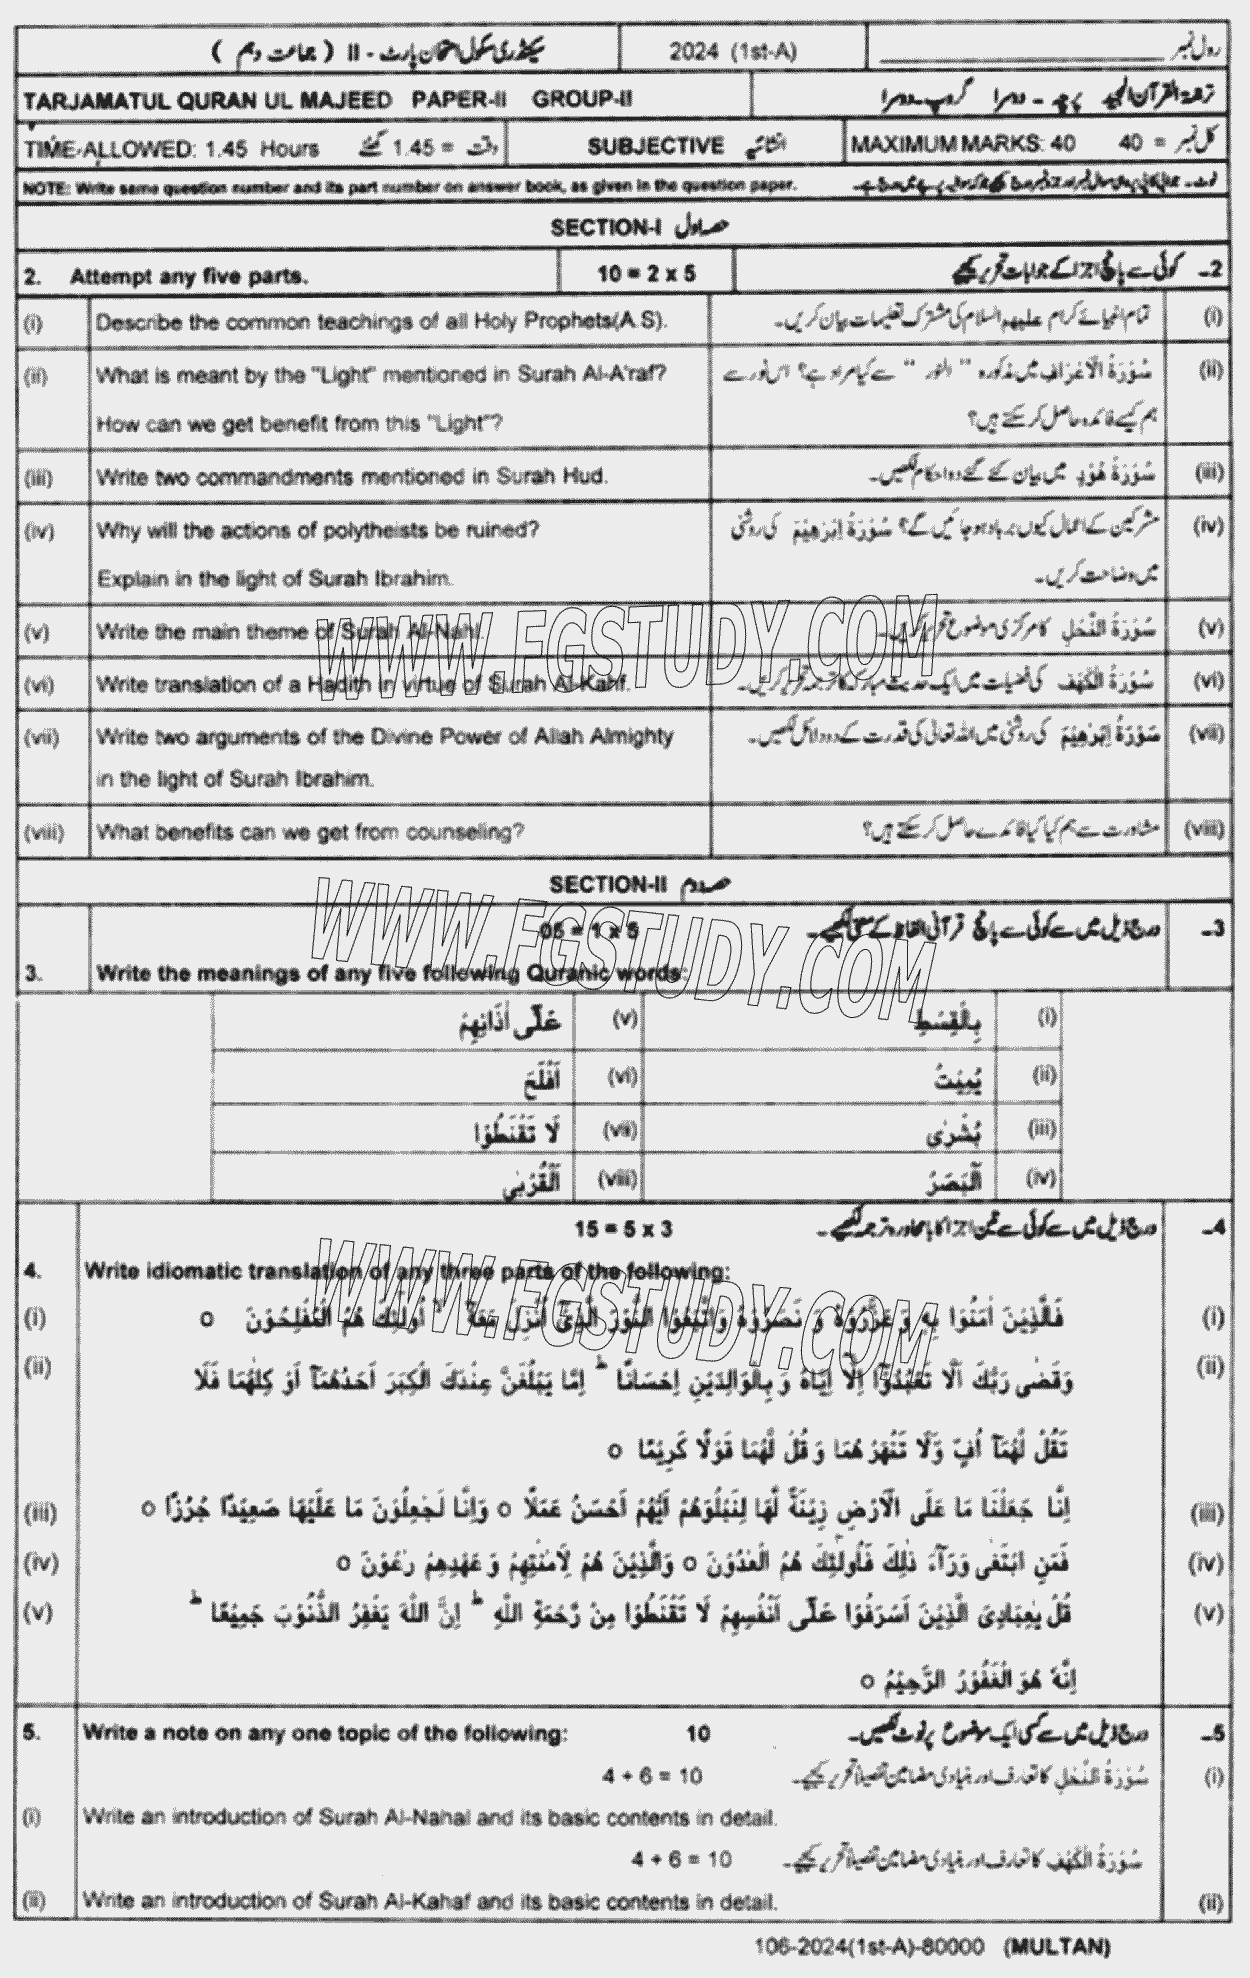 سیکنڈری سکول امتحان پارٹ - II ( جماعت دہم ) 2024 (1st-A) رول نمبر
TARJAMATUL QURAN UL MAJEED PAPER-II GROUP-II ترجمۃ القرآن المجید پرچہ - دوسرا گروپ - دوسرا
TIME-ALLOWED: 1.45 Hours وقت = 1.45 گھنٹے SUBJECTIVE انشائیہ MAXIMUM MARKS: 40 کل نمبر = 40
NOTE: Write same question number and its part number on answer book, as given in the question paper.
SECTION-I حصہ اول
2. Attempt any five parts. 10 = 2 x 5 2۔ کوئی سے پانچ اجزا کے جوابات تحریر کیجیے
(i) Describe the common teachings of all Holy Prophets(A.S). تمام انبیائے کرام علیھم السلام کی مشترک تعلیمات بیان کریں۔ (i)
(ii) What is meant by the "Light" mentioned in Surah Al-A'raf? سُوْرَۃُ الْاَعْرَافِ میں مذکورہ "النور" سے کیا مراد ہے؟ اس نور سے (ii)
How can we get benefit from this "Light"? ہم کیسے فائدہ حاصل کر سکتے ہیں؟
(iii) Write two commandments mentioned in Surah Hud. سُوْرَۃُ ھُوْدٍ میں بیان کئے گئے دو احکام لکھیں۔ (iii)
(iv) Why will the actions of polytheists be ruined? مشرکین کے اعمال کیوں برباد ہو جائیں گے؟ سُوْرَۃُ اِبْرٰھِیْمَ کی روشنی (iv)
Explain in the light of Surah Ibrahim. میں وضاحت کریں۔
(v) Write the main theme of Surah Al-Nahl. سُوْرَۃُ النَّحْلِ کا مرکزی موضوع تحریر کریں۔ (v)
(vi) Write translation of a Hadith in virtue of Surah Al-Kahf. سُوْرَۃُ الْکَھْفِ کی فضیلت میں ایک حدیث مبارک کا ترجمہ تحریر کریں۔ (vi)
(vii) Write two arguments of the Divine Power of Allah Almighty سُوْرَۃُ اِبْرٰھِیْمَ کی روشنی میں اللہ تعالیٰ کی قدرت کے دو دلائل لکھیں۔ (vii)
in the light of Surah Ibrahim.
(viii) What benefits can we get from counseling? مشاورت سے ہم کیا کیا فائدے حاصل کر سکتے ہیں؟ (viii)
SECTION-II حصہ دوم
05 = 1 x 5 3۔ درج ذیل میں سے کوئی سے پانچ قرآنی الفاظ کے معنی لکھیے۔
3. Write the meanings of any five following Quranic words:
(i) بِالْقِسْطِ (v) عَلٰٓی اٰذَانِهِمْ
(ii) يُمِيْتُ (vi) اَفْلَحَ
(iii) بُشْرٰى (vii) لَا تَقْنَطُوْا
(iv) اَلْبَصَرُ (viii) اَلْقُرْبٰى
15 = 5 x 3 4۔ درج ذیل میں سے کوئی سے تین اجزا کا بامحاورہ ترجمہ لکھیے۔
4. Write idiomatic translation of any three parts of the following:
(i) فَالَّذِيْنَ اٰمَنُوْا بِهٖ وَ عَزَّرُوْهُ وَ نَصَرُوْهُ وَاتَّبَعُوا النُّوْرَ الَّذِيْٓ اُنْزِلَ مَعَهٗٓ ۙ اُولٰٓئِكَ هُمُ الْمُفْلِحُوْنَ ○ (i)
(ii) وَقَضٰى رَبُّكَ اَلَّا تَعْبُدُوْٓا اِلَّآ اِيَّاهُ وَ بِالْوَالِدَيْنِ اِحْسَانًا ؕ اِمَّا يَبْلُغَنَّ عِنْدَكَ الْكِبَرَ اَحَدُهُمَآ اَوْ كِلٰهُمَا فَلَا (ii)
تَقُلْ لَّهُمَآ اُفٍّ وَّلَا تَنْهَرْهُمَا وَ قُلْ لَّهُمَا قَوْلًا كَرِيْمًا ○
(iii) اِنَّا جَعَلْنَا مَا عَلَى الْاَرْضِ زِيْنَةً لَّهَا لِنَبْلُوَهُمْ اَيُّهُمْ اَحْسَنُ عَمَلًا ○ وَاِنَّا لَجٰعِلُوْنَ مَا عَلَيْهَا صَعِيْدًا جُرُزًا ○ (iii)
(iv) فَمَنِ ابْتَغٰى وَرَآءَ ذٰلِكَ فَاُولٰٓئِكَ هُمُ الْعٰدُوْنَ ○ وَالَّذِيْنَ هُمْ لِاَمٰنٰتِهِمْ وَ عَهْدِهِمْ رٰعُوْنَ ○ (iv)
(v) قُلْ يٰعِبَادِيَ الَّذِيْنَ اَسْرَفُوْا عَلٰٓى اَنْفُسِهِمْ لَا تَقْنَطُوْا مِنْ رَّحْمَةِ اللّٰهِ ؕ اِنَّ اللّٰهَ يَغْفِرُ الذُّنُوْبَ جَمِيْعًا ؕ (v)
اِنَّهٗ هُوَ الْغَفُوْرُ الرَّحِيْمُ ○
5. Write a note on any one topic of the following: 10 5۔ درج ذیل میں سے کسی ایک موضوع پر نوٹ لکھیں۔
4 + 6 = 10 سُوْرَۃُ النَّحْلِ کا تعارف اور بنیادی مضامین تفصیلاً تحریر کیجیے۔ (i)
(i) Write an introduction of Surah Al-Nahal and its basic contents in detail.
4 + 6 = 10 سُوْرَۃُ الْکَھْفِ کا تعارف اور بنیادی مضامین تفصیلاً تحریر کیجیے۔
(ii) Write an introduction of Surah Al-Kahaf and its basic contents in detail. (ii)
106-2024(1st-A)-80000 (MULTAN)
WWW.FGSTUDY.COM
WWW.FGSTUDY.COM
WWW.FGSTUDY.COM